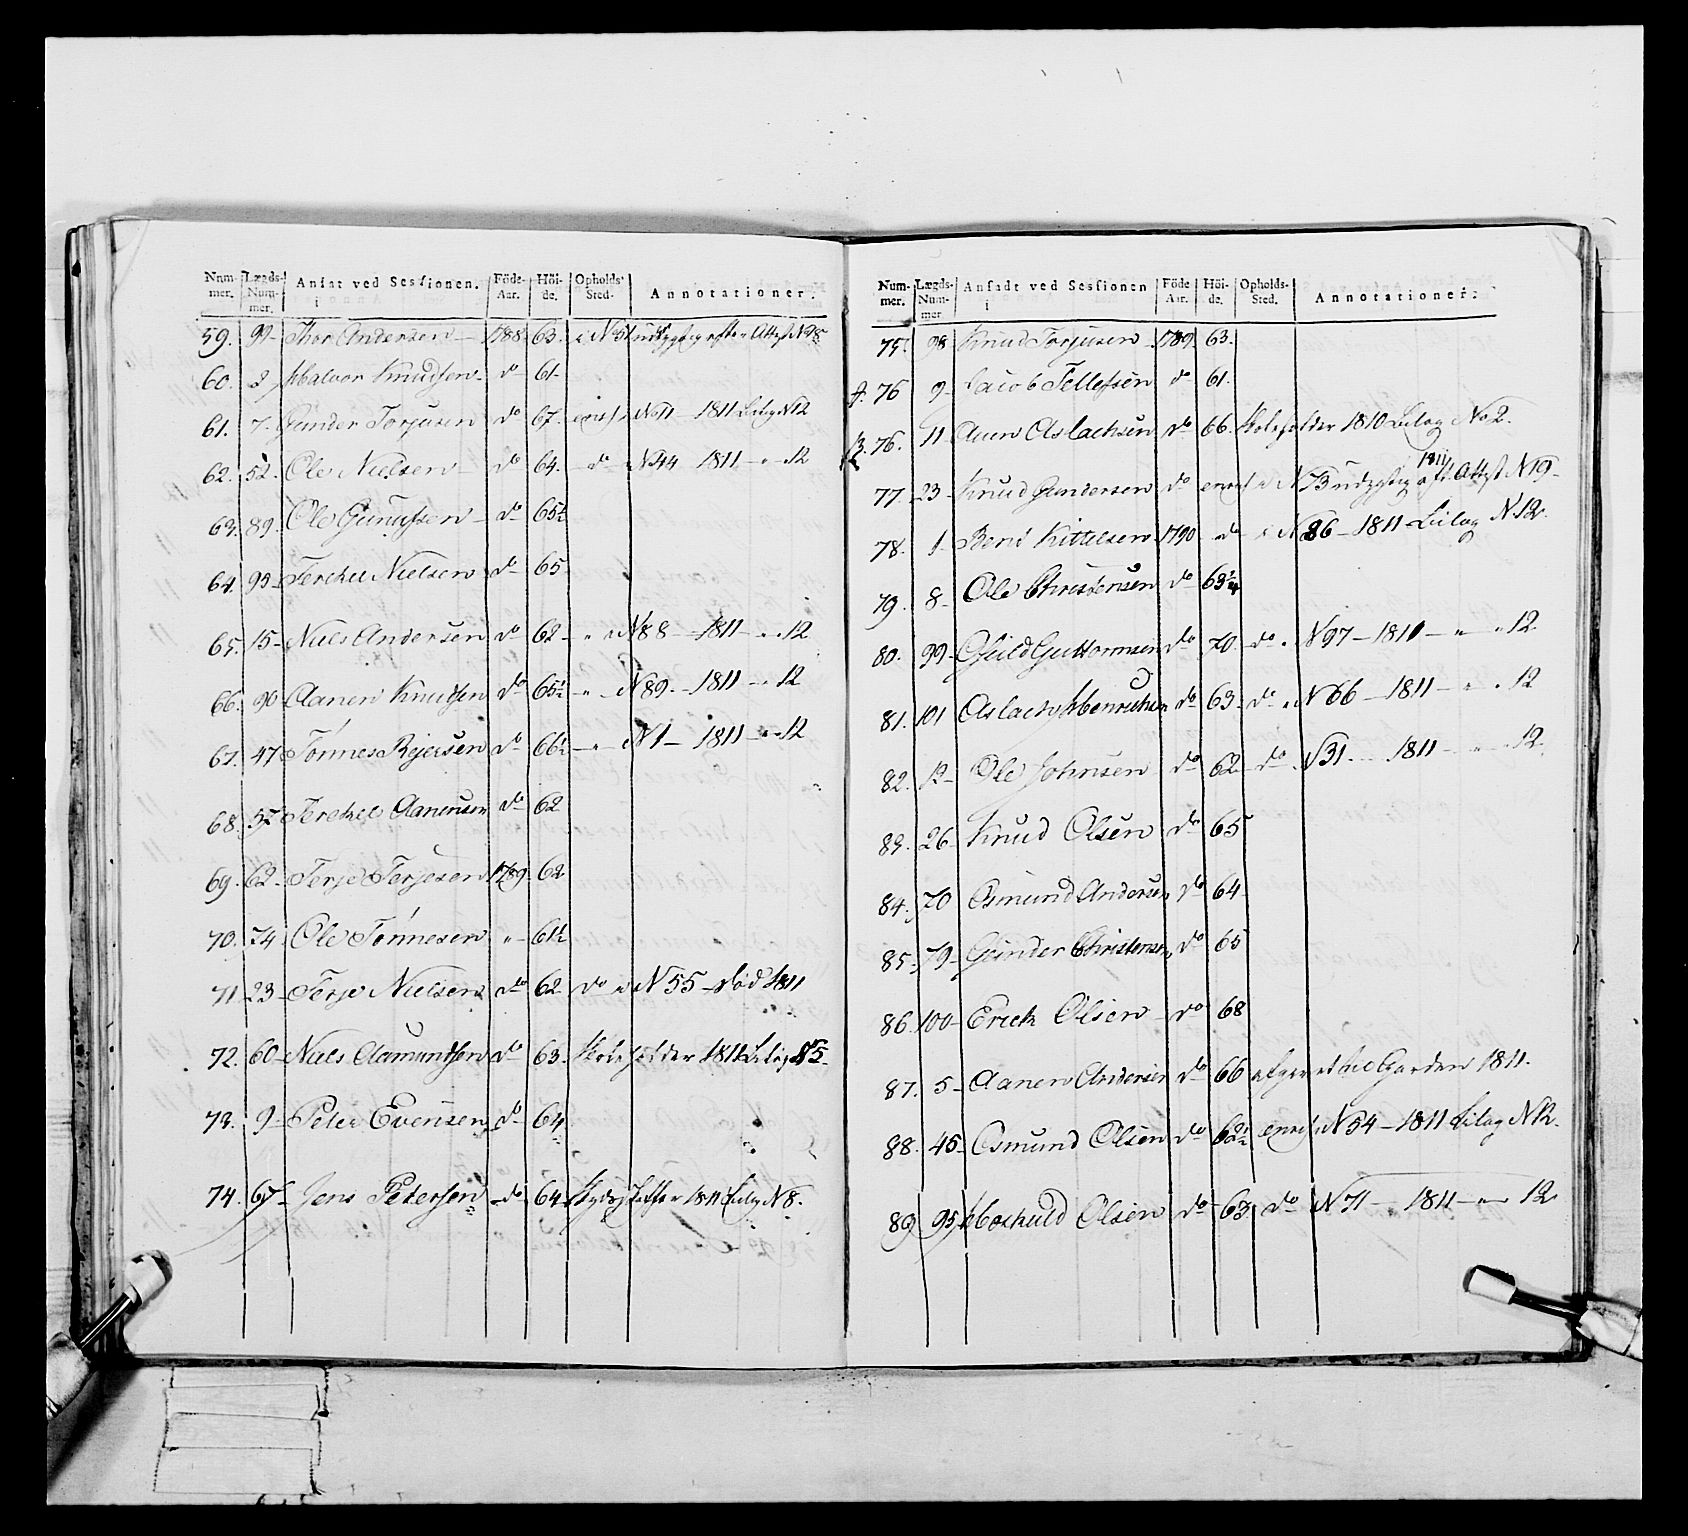 Num-mer. Lægds-Num-mer. Ansat ved Sessionen. i Föde-Aar. Höi-de. Opholds-Sted. Annotationer.
59. 99 Thor Andersen 1788 63. i N 51 udygtig efter Attest N 28
60. 2 Halvor Knudsen do 61.
61. 7. Gunder Torjusen do 67. N 11 1811 Bilag N 12
62. 52. Ole Nielsen do 64. do N 44 1811 " 12
63. 89. Ole Gunufsen do 65½
64. 95 Terchel Nielsen do 65
65. 15 Niels Andersen do 62 " " N 88 1811 " 12
66. 90 Aanen Knudsen do 65½ " N 89. 1811 " 12
67. 47 Tönnes Rejersen do 66½ " N 1 1811 " 12
68. 57 Terchel Aanensen do 62
69. 62. Terje Terjesen 1789 62
70. 74 Ole Tönnesen " 61½
71 23 Terje Nielsen do 62 do N 55 död 1811
72. 60 Niels Aamundsen do 63. 1811 Bilag N 5
73. 9 Peter Evensen do 64
74. 67 Jens Petersen do 64 1811 Bilag N 8.
Num-mer. Lægds-Num-mer Ansadt ved Sessionen i Föde Aar. Höi-de. Opholds-Sted. Annotationer.
75. 98 Knud Torjusen 1789 63.
76 9 Jacob Tellefsen do 61.
76. 11 Auen Aslachsen do 66. 1810 Bilag No 2.
77. 23 Knud Gundersen do N 73 udygtig 1811 eft. Attest N 19
78. 1 Bent Kittelsen 1790 do i N 86 1811 Bilag N 12.
79. 8 Ole Christensen do 63¼
80. 99 Guttormsen do 70. do N 97 1811 " 12
81. 101 Aslach Henrichsen do 63 do N 66 1811 " 12
82. 12 Ole Johnsen do 62 do N 31 1811 " 12
83. 26 Knud Olsen do 65
84. 70 Osmund Andersen do 64
85. 79 Gunder Christensen do 65
86. 100 Erich Olsen do 68
87. 5 Aanen Andersen do 66 afgivet til Garden 1811.
88. 45 Osmund Olsen do 62½ N 54 1811 Bilag N 12.
89 95 Hoskuld Olsen do 63 do N 71 1811 " 12